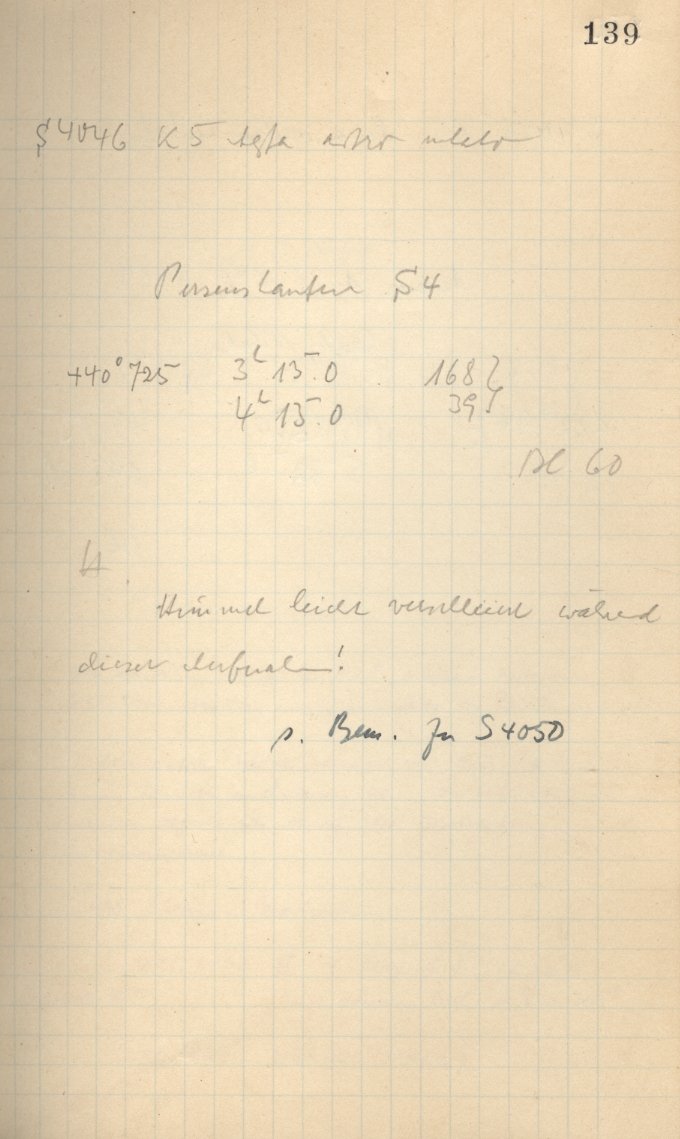 139
S 4046 K5 Agfa astro
Perseushaufen S 4
+40° 725 3h 15.0 168
4h 15.0 39
60
H
Himmel leicht verschleiert während
dieser Aufnahme!
s. Bem. zu S 4050